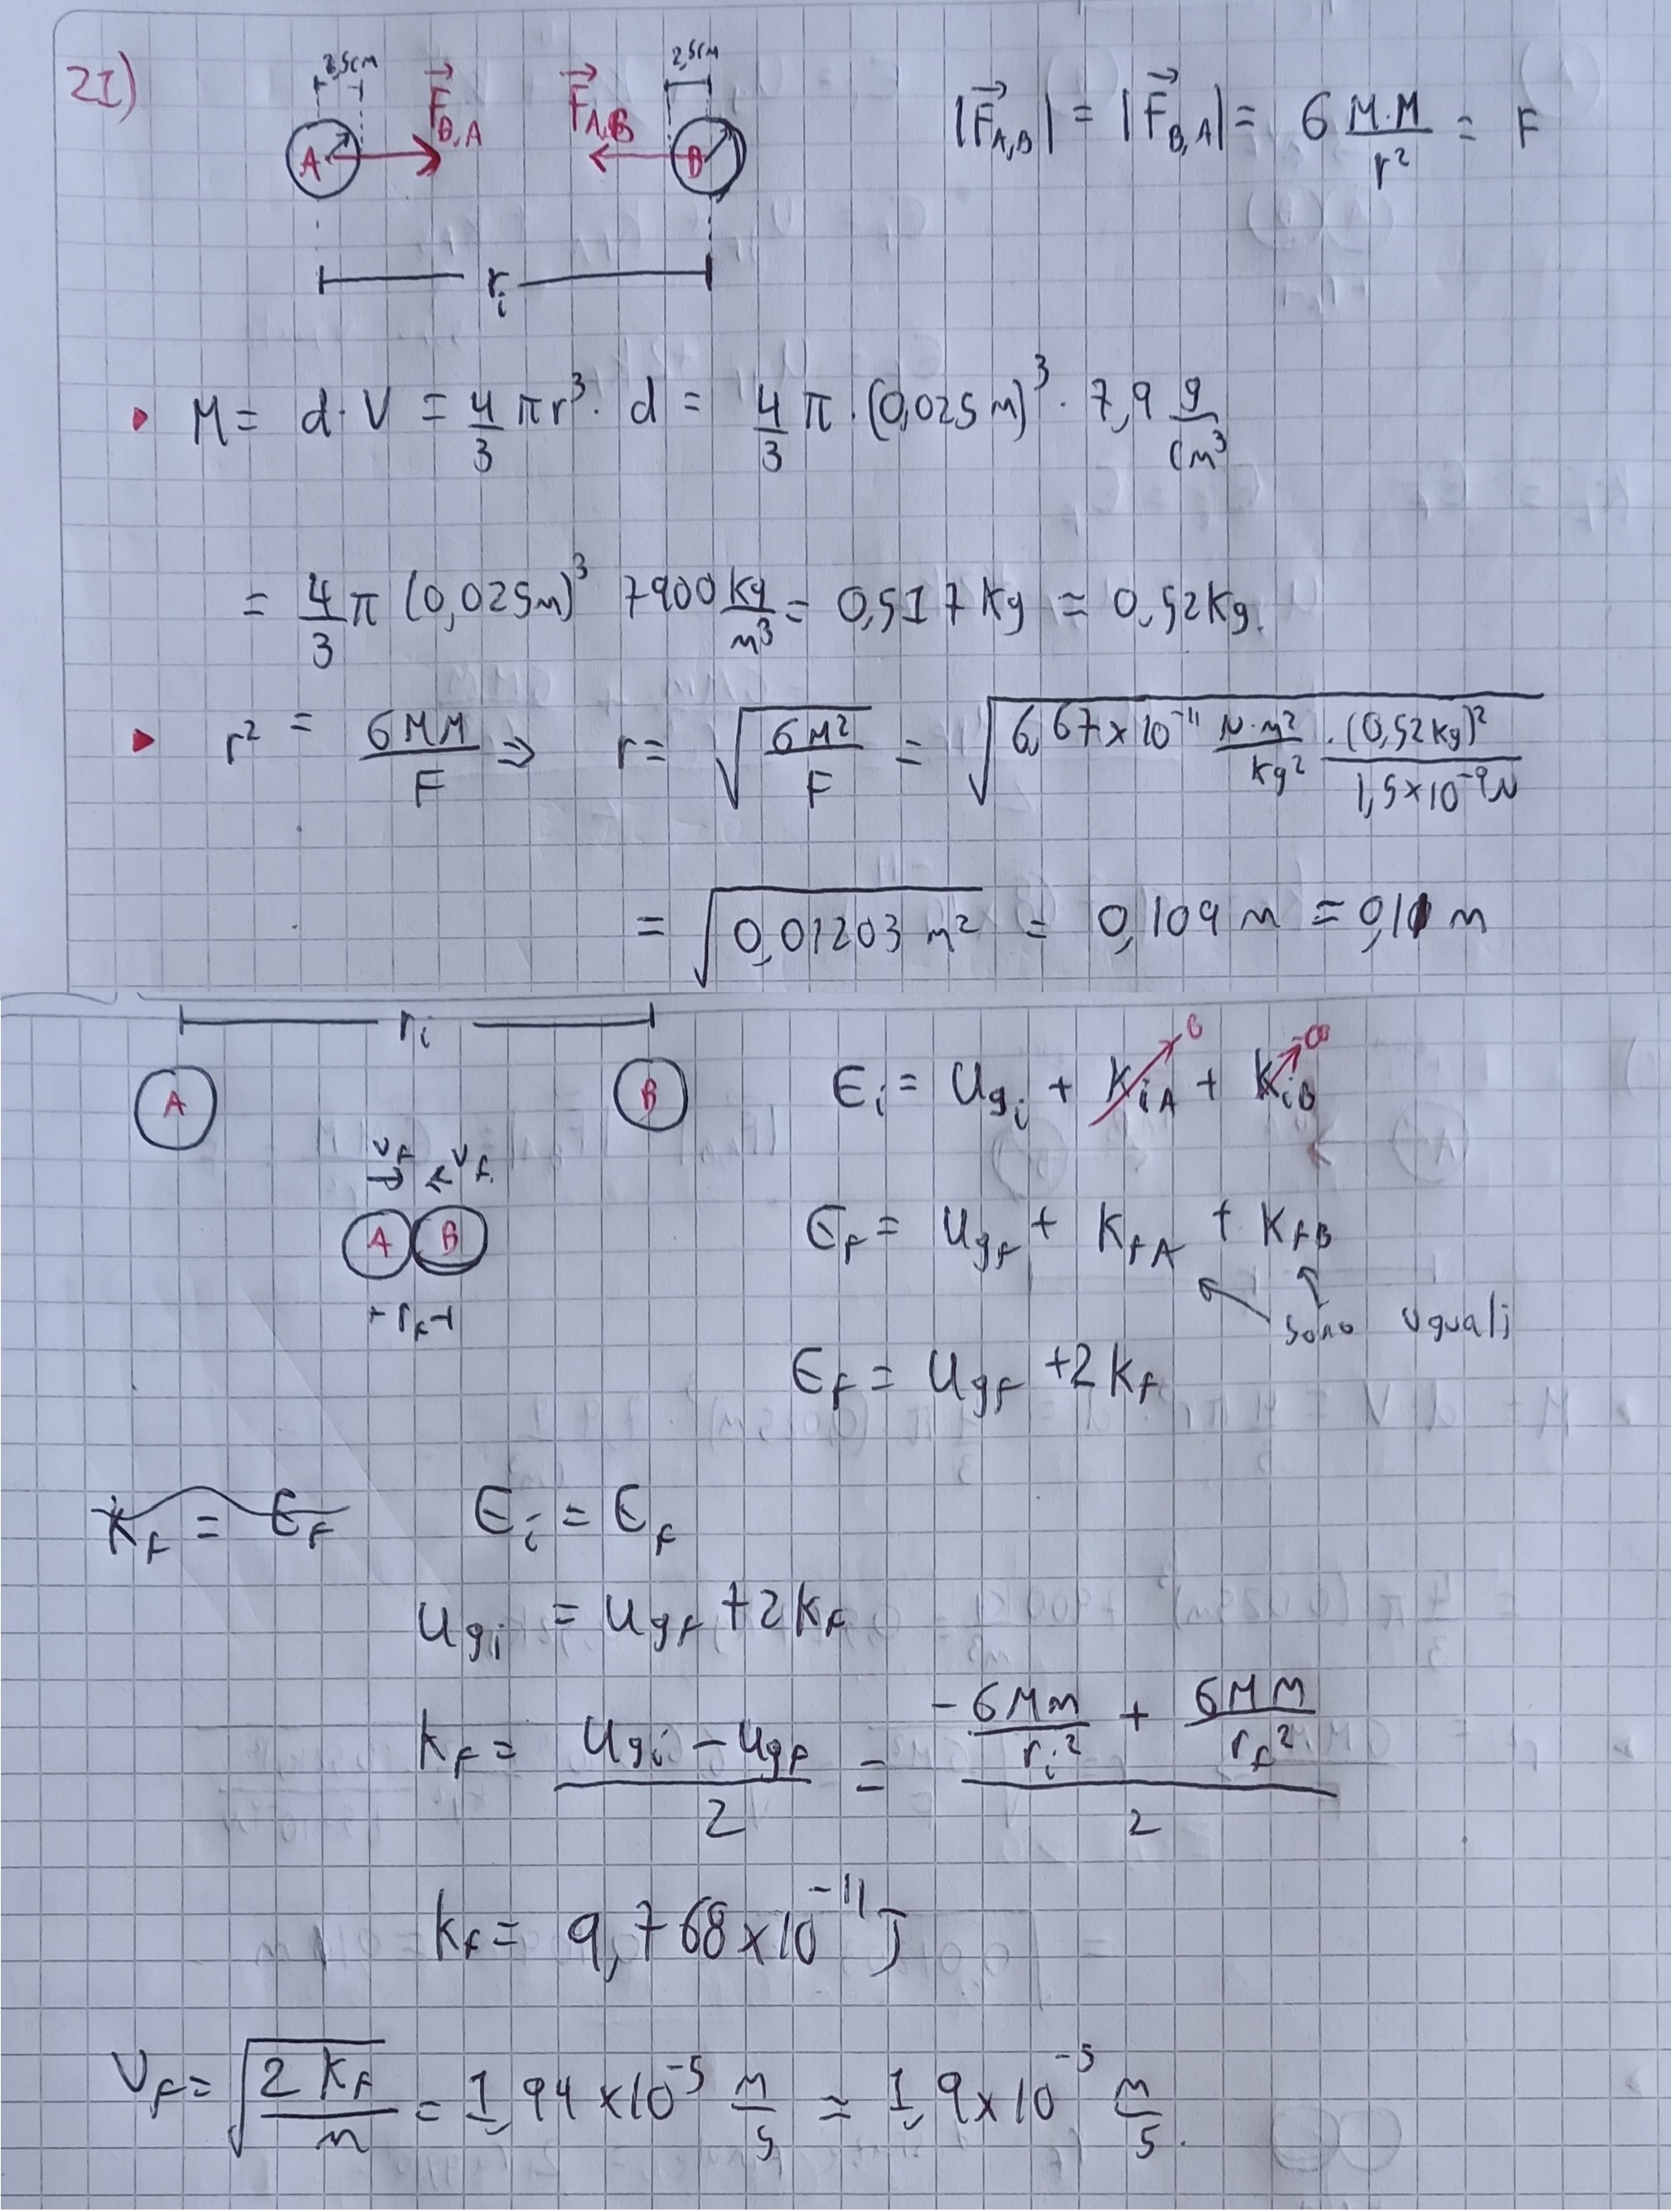 2I)
2,5cm 2,5cm
A F⃗B,A F⃗A,B B |F⃗A,B| = |F⃗B,A| = G M·M/r² = F
ri
• M = d·V = 4/3 πr³· d = 4/3 π·(0,025m)³· 7,9 g/cm³
= 4/3 π (0,025m)³ 7900 kg/m³ = 0,517 kg ≈ 0,52kg.
r² = GMM/F ⇒ r = √(GM²/F) = √(6,67×10⁻¹¹ N·m²/kg² · (0,52kg)²/1,5×10⁻⁹N)
= √(0,01203 m²) = 0,109 m = 0,11 m
ri
A B Ei = Ugi + KiA + KiB
0 0
vf vf.
A B Ef = Ugf + KfA + KfB
rf sono uguali
Ef = Ugf + 2Kf
Kf = Ef Ei = Ef
Ugi = Ugf + 2Kf
Kf = (Ugi - Ugf)/2 = (-GMm/ri² + GMM/rf²)/2
Kf = 9,768×10⁻¹¹ J
Vf = √(2Kf/m) = 1,94×10⁻⁵ m/s ≈ 1,9×10⁻⁵ m/s.